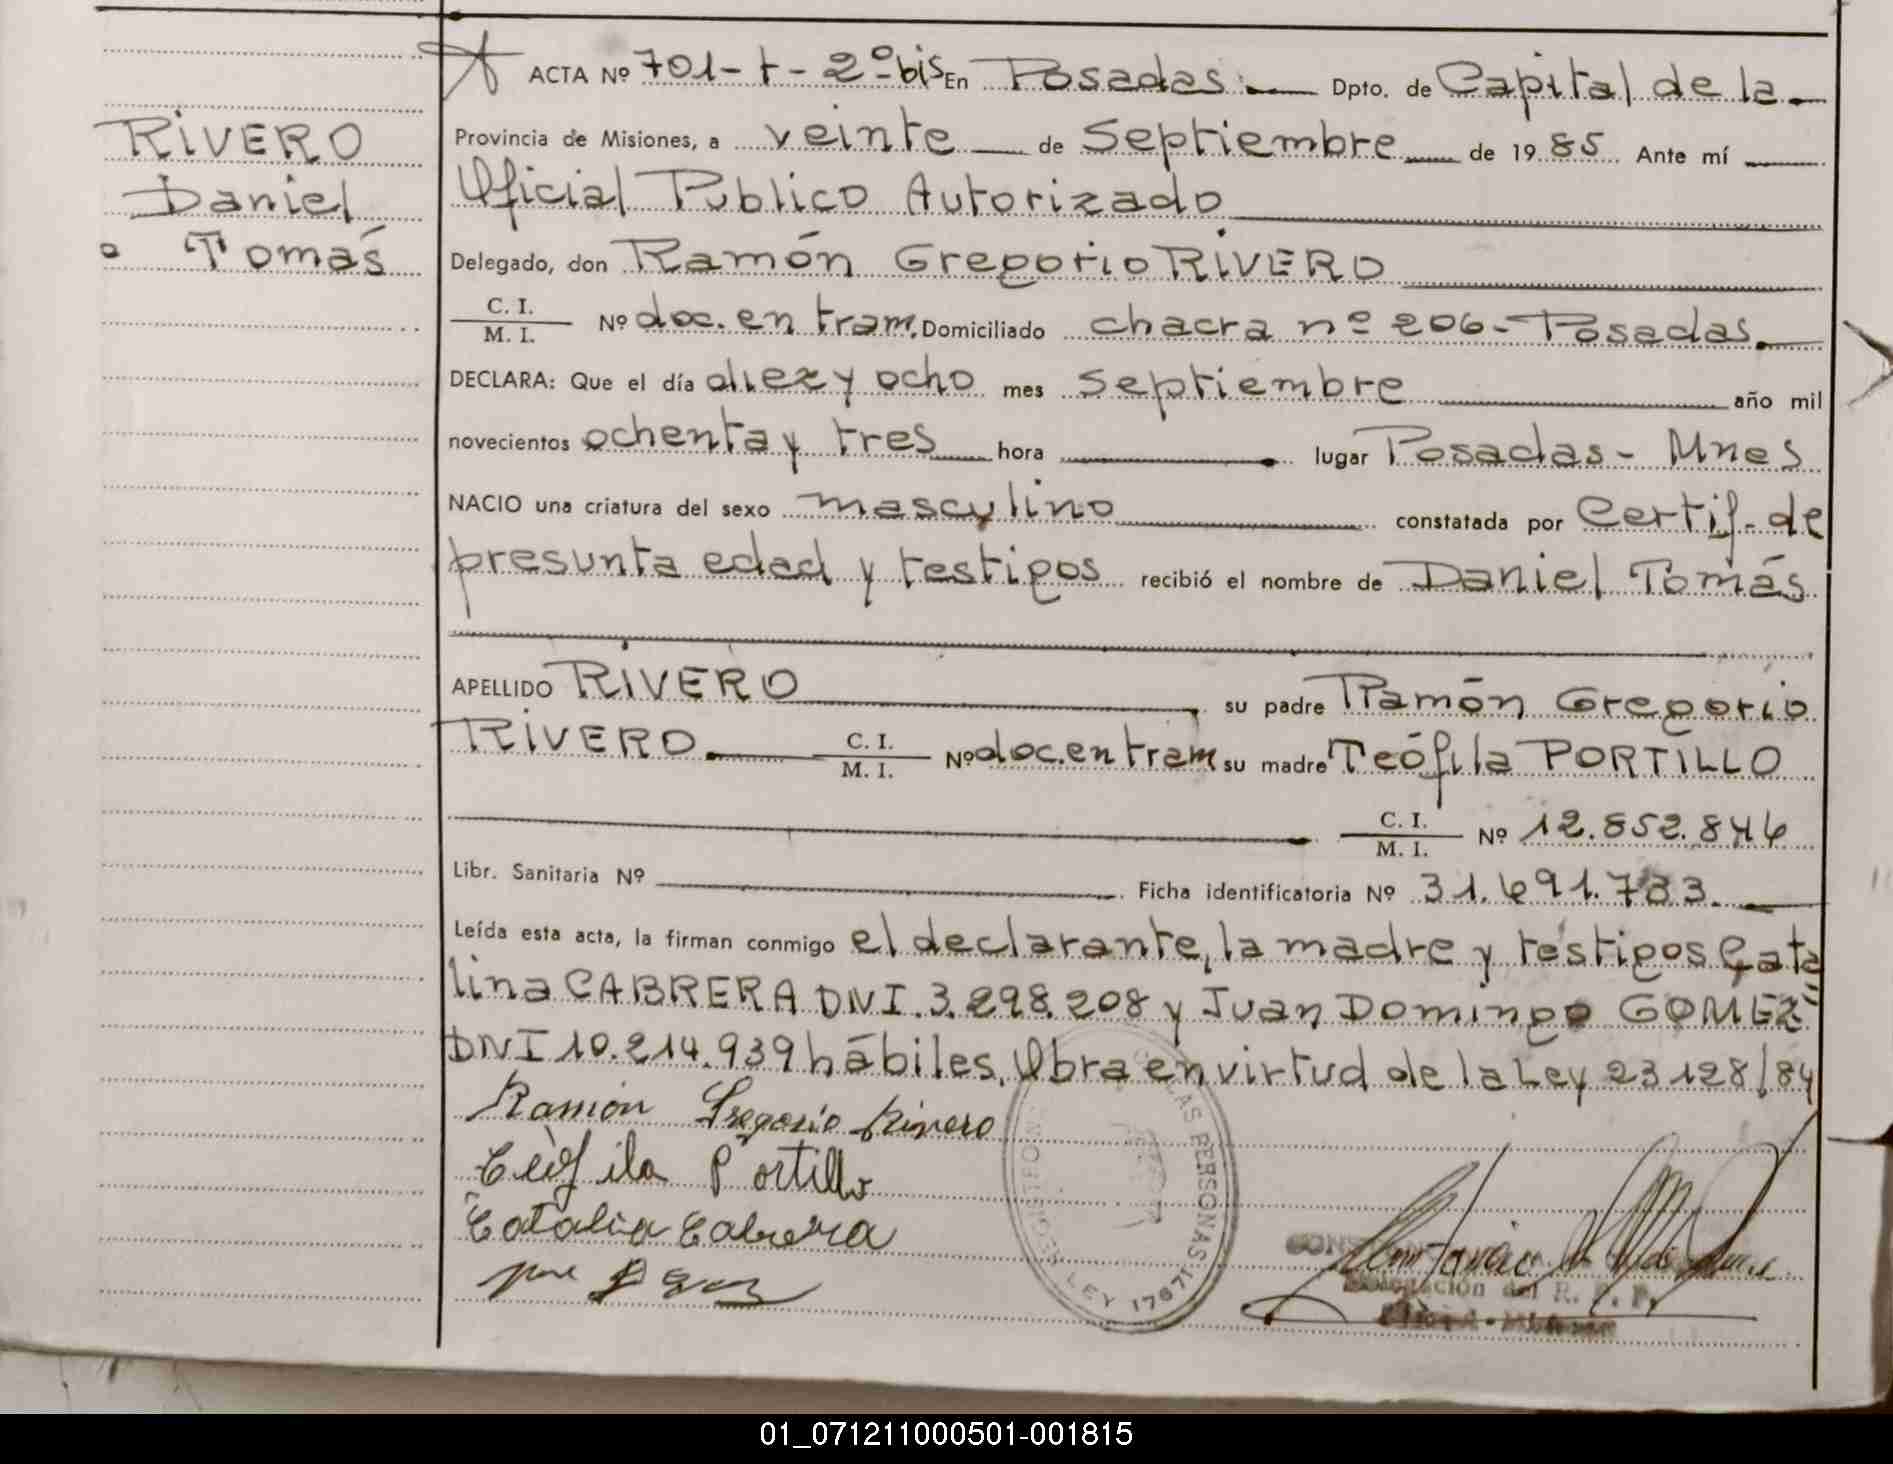 RIVERO
Daniel
Tomás
ACTA Nº 701-t-2º bis En Posadas.— Dpto. de Capital de la
Provincia de Misiones, a veinte de Septiembre de 1985 Ante mí
Oficial Publico Autorizado
Delegado, don Ramón Gregorio RIVERO
C. I.
M. I. Nº doc. en tram. Domiciliado chacra nº 206- Posadas.
DECLARA: Que el día diez y ocho mes Septiembre año mil
novecientos ochenta y tres hora lugar Posadas - Mnes
NACIO una criatura del sexo masculino constatada por Certif. de
presunta edad y testigos recibió el nombre de Daniel Tomás
APELLIDO RIVERO su padre Ramón Gregorio
RIVERO. C. I. M. I. Nº doc. en tram su madre Teófila PORTILLO
C. I. M. I. Nº 12.852.846
Libr. Sanitaria Nº Ficha identificatoria Nº 31.691.733.
Leída esta acta, la firman conmigo el declarante, la madre y testigos Cata
lina CABRERA DNI. 3.298.208 y Juan Domingo GOMEZ
DNI 10.214.939 hábiles. Obra en virtud de la Ley 23128/84
Ramón Gregorio Rivero
Teófila Portillo
Catalina Cabrera
LAS PERSONAS
LEY 17671
Delegación del R. P. P.
01_071211000501-001815